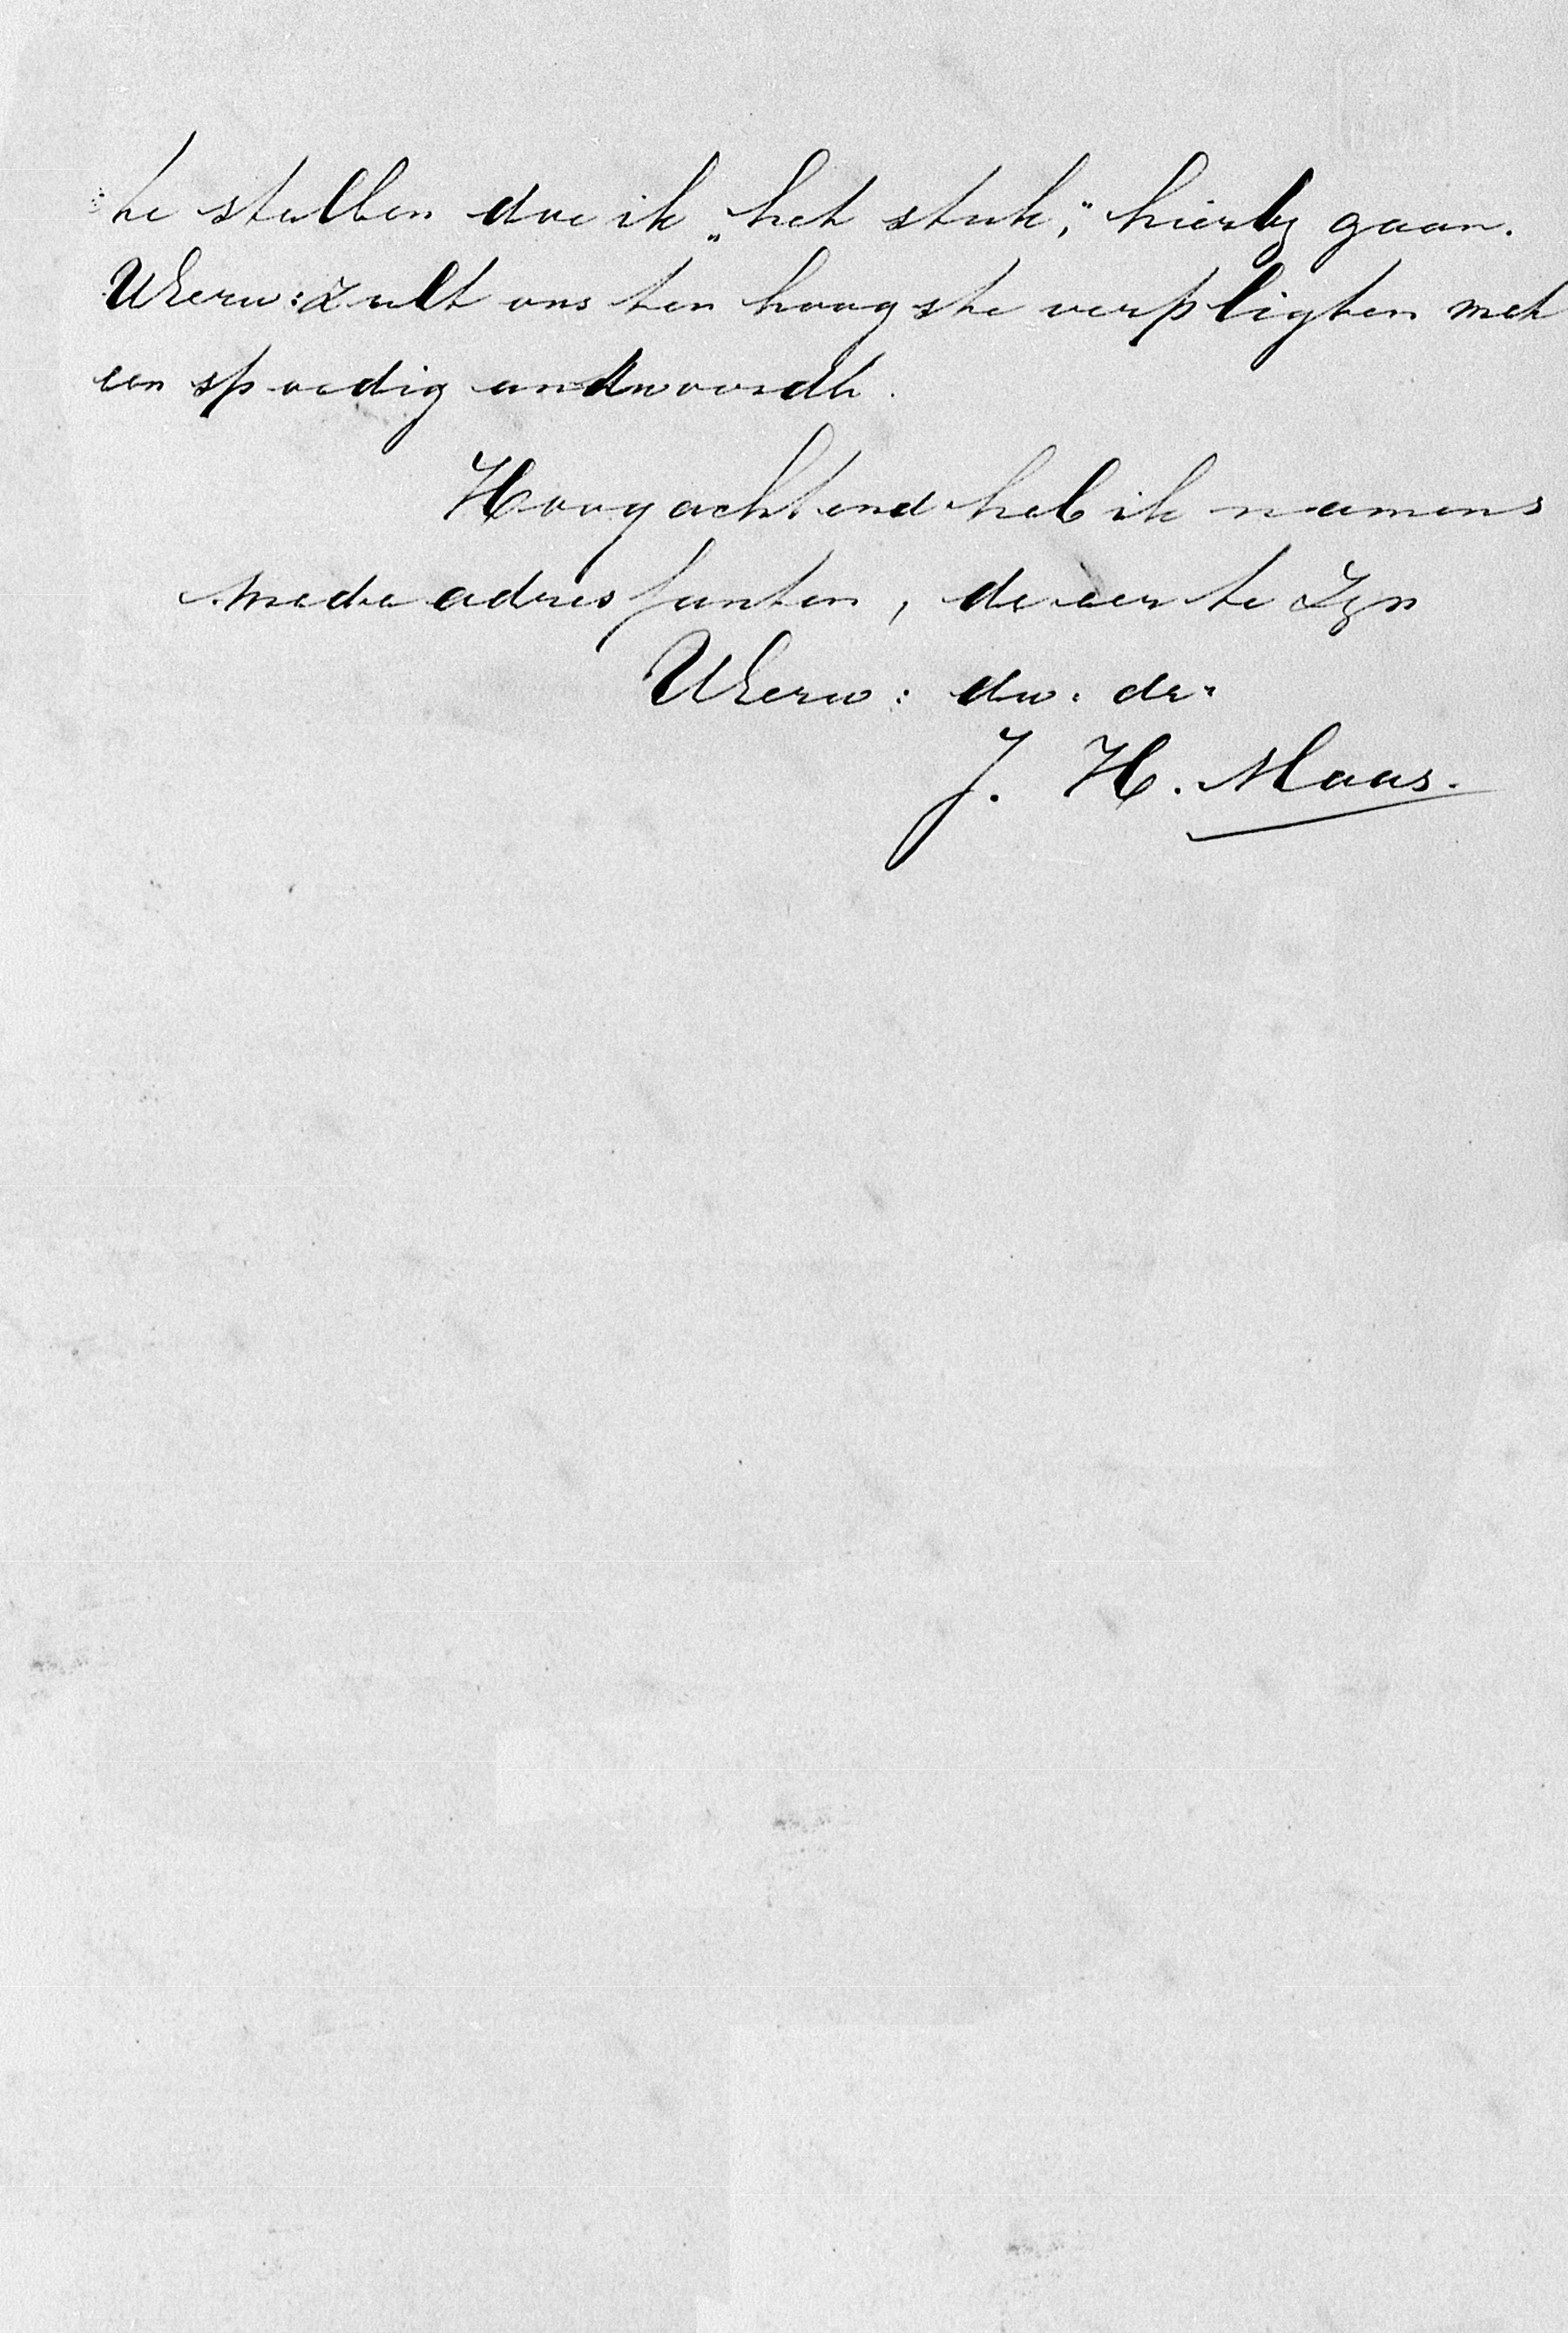 te stellen doe ik „het stuk,” hierby gaan.
UEerw: zult ons ten hoogste verpligten met
een spoedig andtwoordt.
Hoogachtend heb ik namens
mede adressanten, de eer te zyn
UEerw: dw. dr.
J. H. Maas.